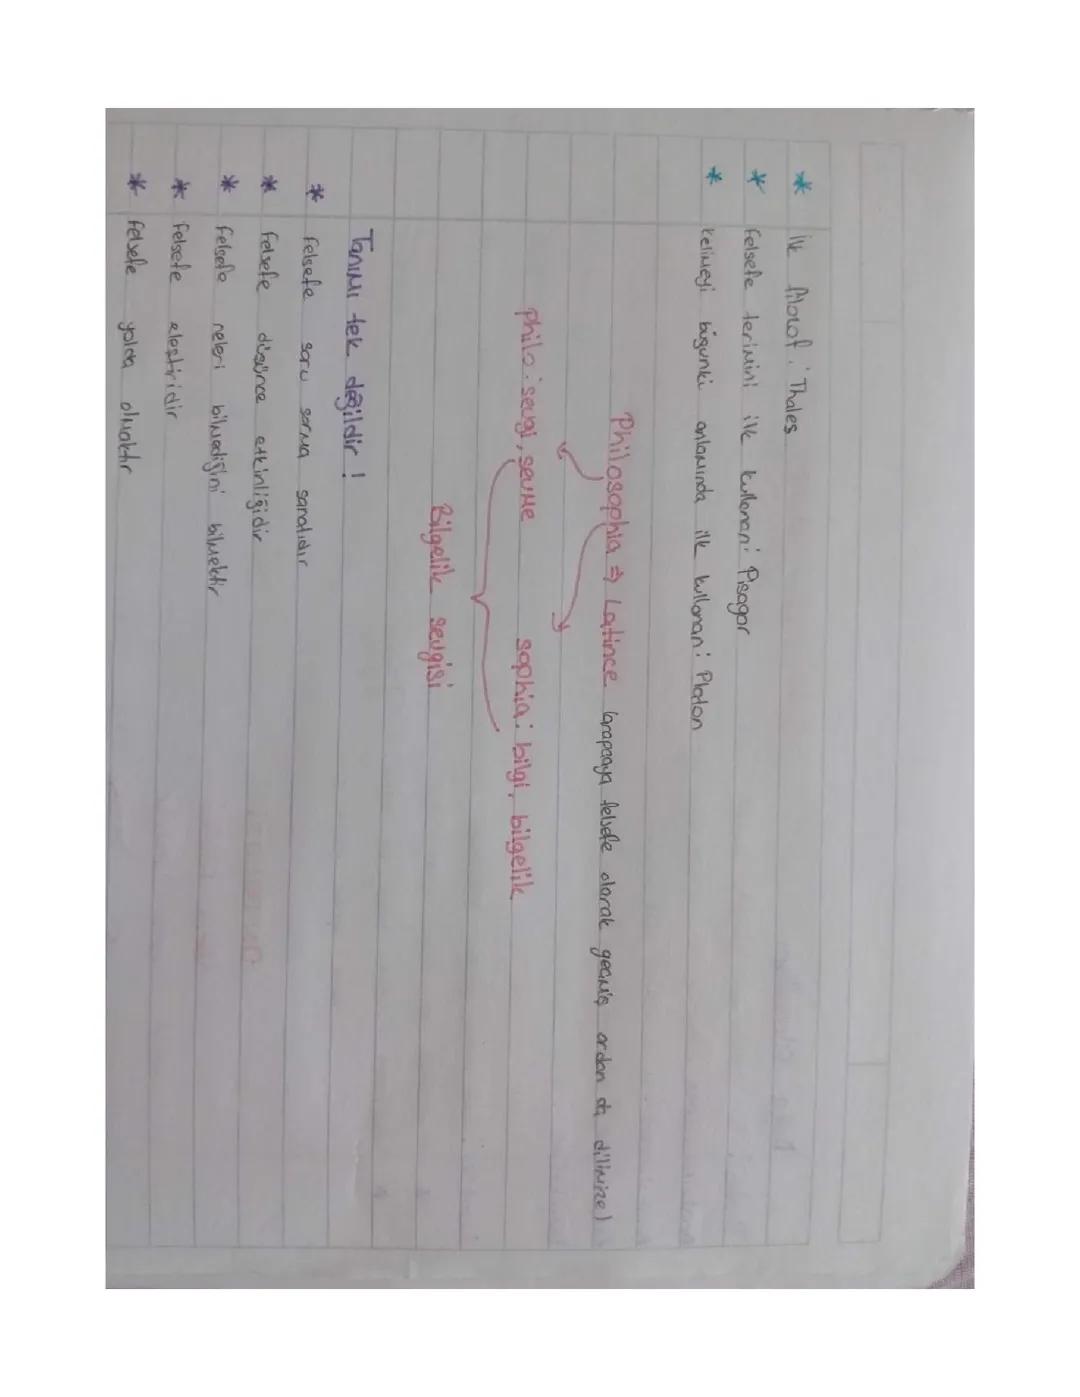 * ilk filozof : Thales
* felsefe terimini ilk kullanan : Pisagor
* kelimeyi bugunki anlamında ilk kullanan : Platon
Philosophia ⇒ Latince (arapçaya felsefe olarak geçmiş ordan da dilimize)
Philo : sevgi, sevme sophia : bilgi, bilgelik
Bilgelik sevgisi
Tanımı tek değildir !
* felsefe soru sorma sanatıdır
* felsefe düşünce etkinliğidir
* felsefe neleri bilmediğini bilmektir
* felsefe eleştiridir
* felsefe yolda olmaktır